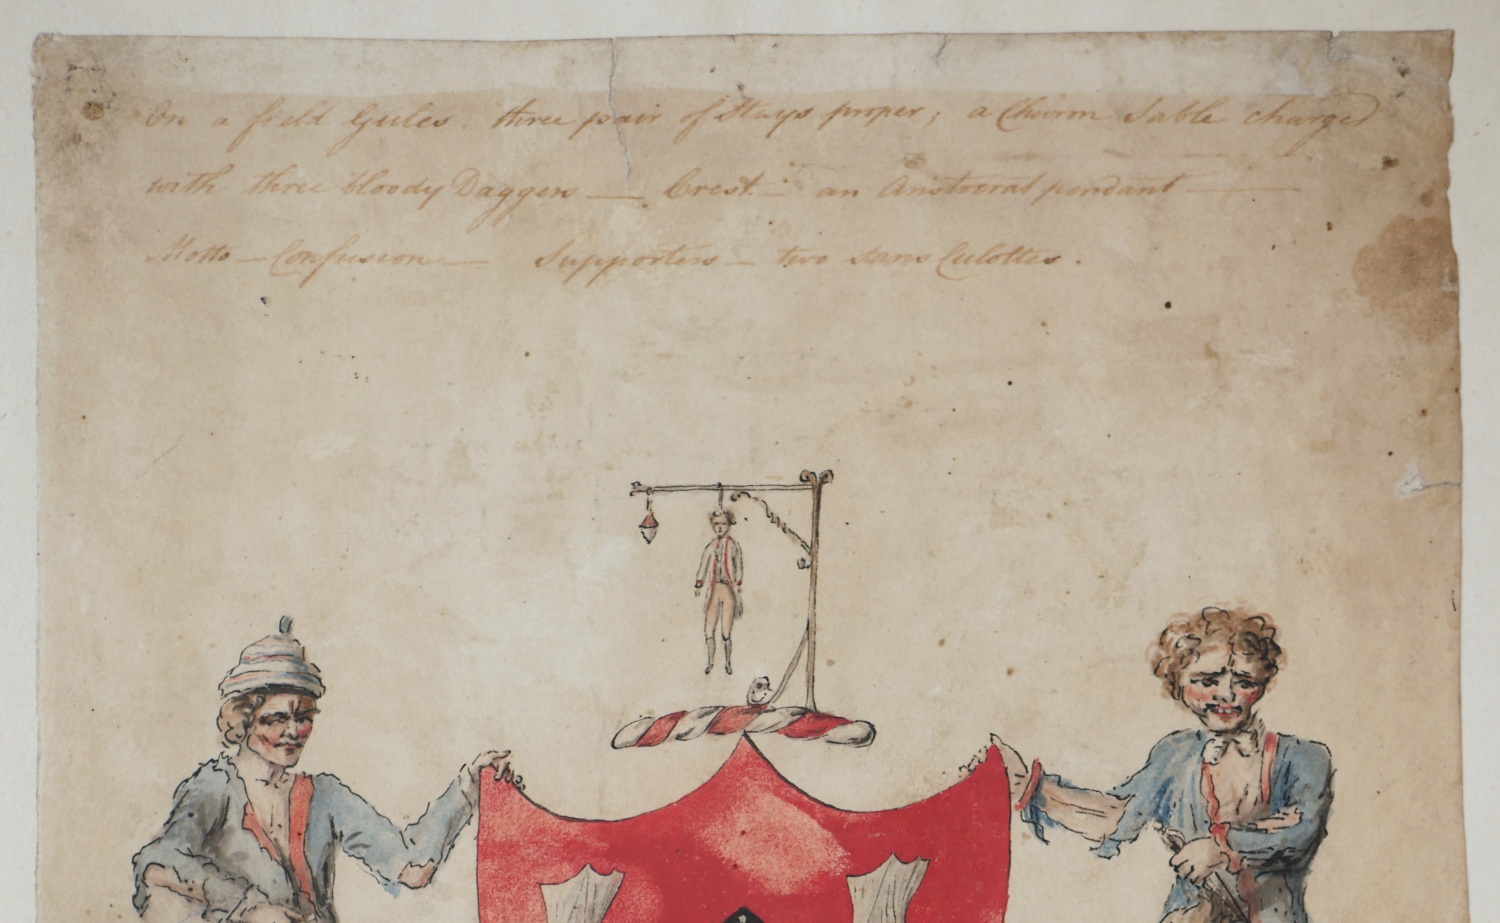 On a field Gules three pair of Stays proper; a Chevron Sable charged
with three bloody Daggers — Crest — an Aristocrat pendant —
Motto — Confusion — Supporters — two sans Culottes.